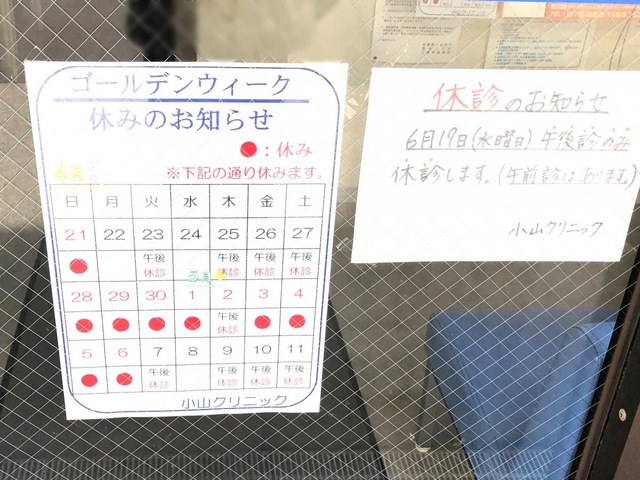 ゴールデンウィーク
休みのお知らせ
●：休み
※下記の通り休みます。
4月
日 月 火 水 木 金 土
21 22 23 24 25 26 27
● 午後休診 午後休診 午後休診 午後休診
5月
28 29 30 1 2 3 4
● ● ● ● 午後休診 ● ●
5 6 7 8 9 10 11
● ● 午後休診 午後休診 午後休診 午後休診
小山クリニック
休診のお知らせ
6月19日(水曜日)午後診のみ
休診します。(午前診はあります)
小山クリニック